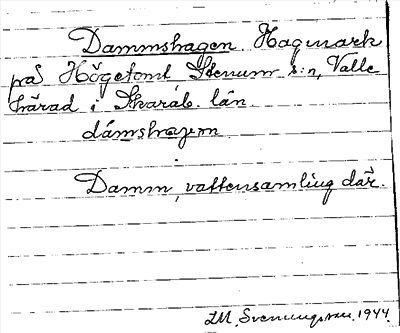 Dammshagen. Hagmark
på Högetomt Stenum s:n, Valle
härad i Skarab. län.
dámshagen
Damm, vattensamling där.
LM. Svenungsson. 1944.